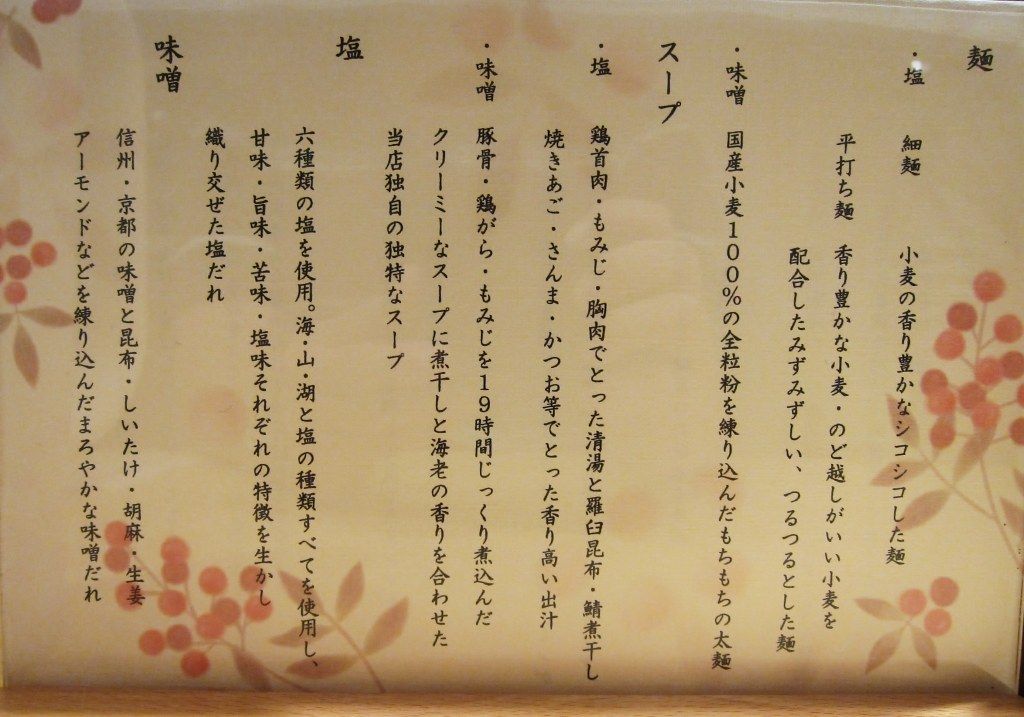 麺
・塩　細麺　小麦の香り豊かなシコシコした麺
平打ち麺　香り豊かな小麦・のど越しがいい小麦を
配合したみずみずしい、つるつるとした麺
・味噌　国産小麦１００％の全粒粉を練り込んだもちもちの太麺
スープ
・塩　鶏首肉・もみじ・胸肉でとった清湯と羅臼昆布・鯖煮干し
焼きあご・さんま・かつお等でとった香り高い出汁
・味噌　豚骨・鶏がら・もみじを１９時間じっくり煮込んだ
クリーミーなスープに煮干しと海老の香りを合わせた
当店独自の独特なスープ
塩
六種類の塩を使用。海・山・湖と塩の種類すべてを使用し、
甘味・旨味・苦味・塩味それぞれの特徴を生かし
織り交ぜた塩だれ
味噌
信州・京都の味噌と昆布・しいたけ・胡麻・生姜
アーモンドなどを練り込んだまろやかな味噌だれ